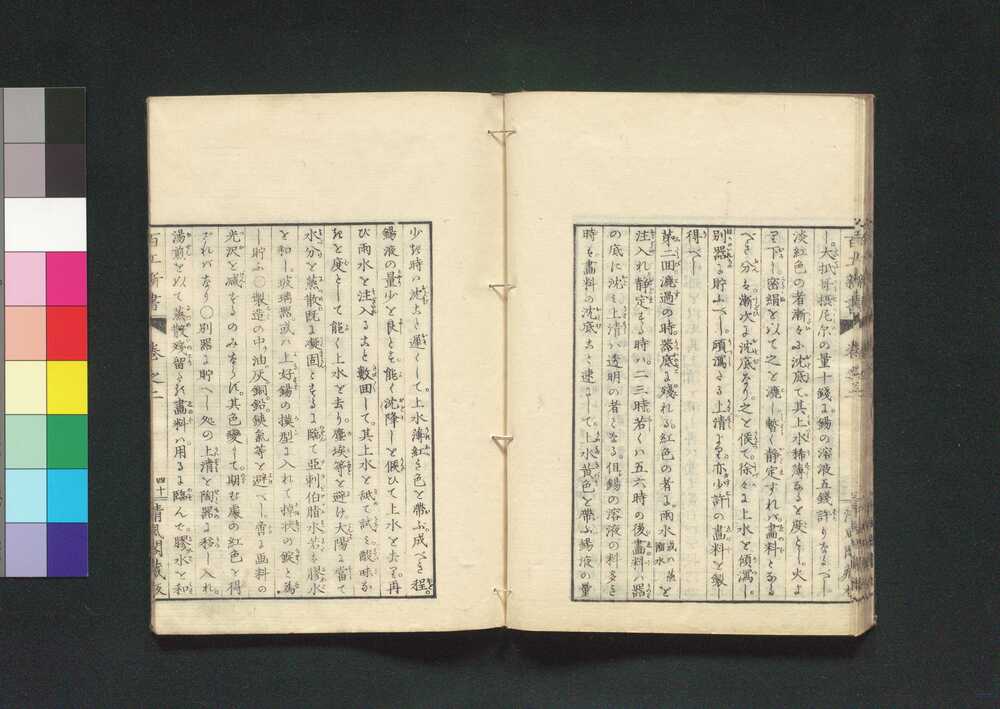 し。大抵骨撰尼尓の量十錢に錫の溶液五錢許りなるべし
淡紅色の者漸々ふ沈底て其上水稀薄なると度とし火より
下し密絹を以て之と漉し暫く静定すれバ畫料とるる
べき分ハ漸次に沈底なり之と俟て徐々に上水と傾瀉し
別器に貯ふべし頭瀉する上清よりも亦少許の畫料と製し
得べし
第二回漉過の時器底に殘れる紅色の者に雨水或ハ蒸餾水と
注入れ静定する時ハ二三時若くハ五六時の後畫料ハ器
の底に沈ミ上清ハ透明の者となる但錫の溶液の料多き
時も畫料の沈底すこと速にして上水黄色と帶ふ錫液の量
少き時ハ沈むこと遅くして。上水薄紅き色と帶ふ成べき程
錫液の量少と良とす能く沈降しと俟ひて上水と去り再
び雨水と注入ること數回して。其上水と舐て試ミ酸味なき
と度として能く上水と去り。塵埃等と避け大陽に當て
水分と蒸散既に凝固とするに臨て亞剌伯脂水若くハ膠水
と和し玻璃器或ハ上好錫の摸型に入れて棹狀の錠と爲
し貯ふ〇製造の中油灰銅鉛鐵氣等と避べし啻に画料の
光沢と減するのみならバ其色變して期する處の紅色と得
ざればなり〇別器に貯へし処の上清と陶器に移し入れ。
湯煎と以て蒸散残留る処の畫料ハ用るに臨んで膠水と和
百工新書
卷之二
四十一
清風閣藏板